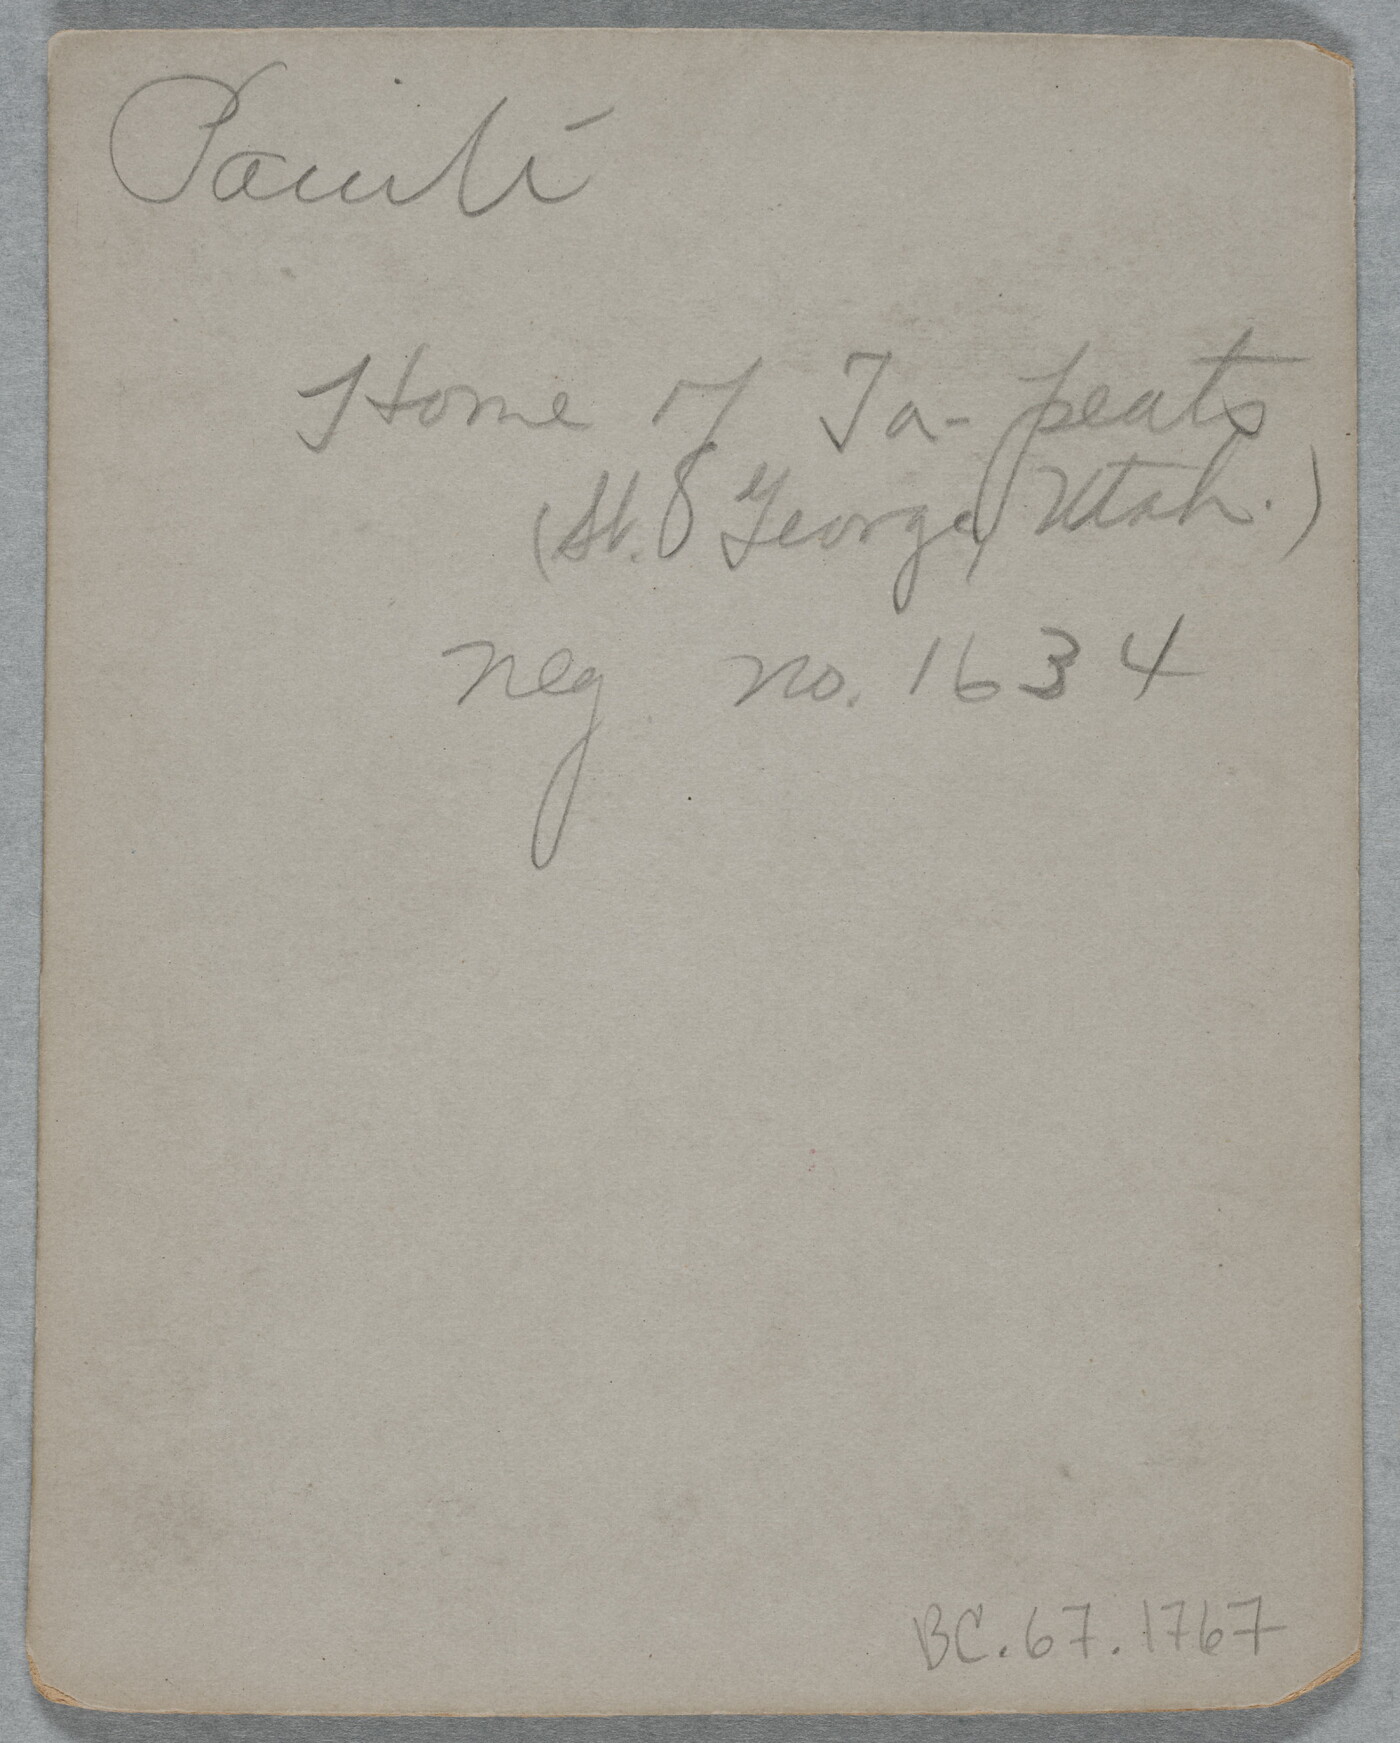 Paiuti
Home of Ta-peats
(St. George, Utah.)
neg no. 1634
BC.67.1767